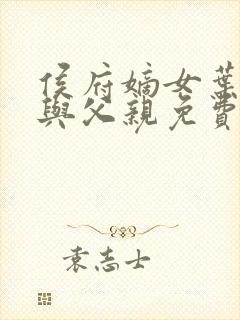 侯府嫡女葉
與父親免費
袁志士